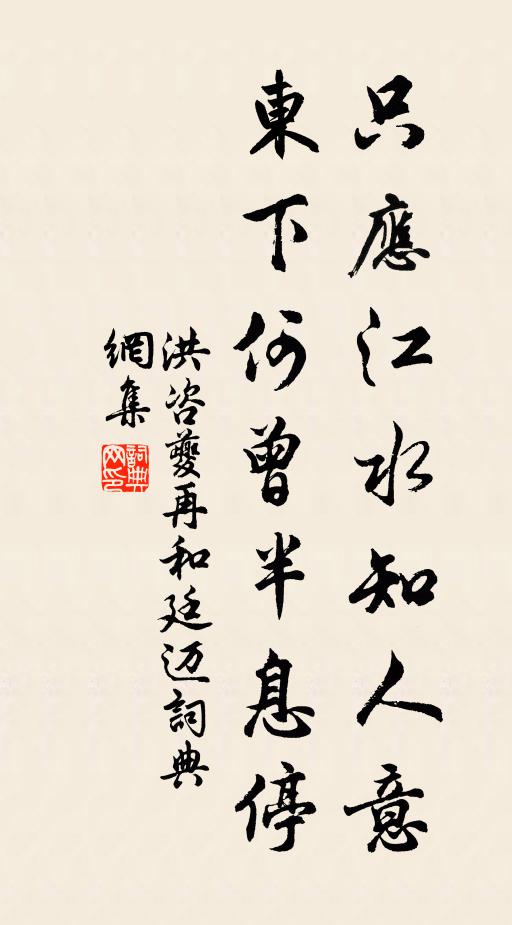 只應江水知人意
東下何曾半息停
洪咨夔再和廷迈詞典
網集
詞典
网印